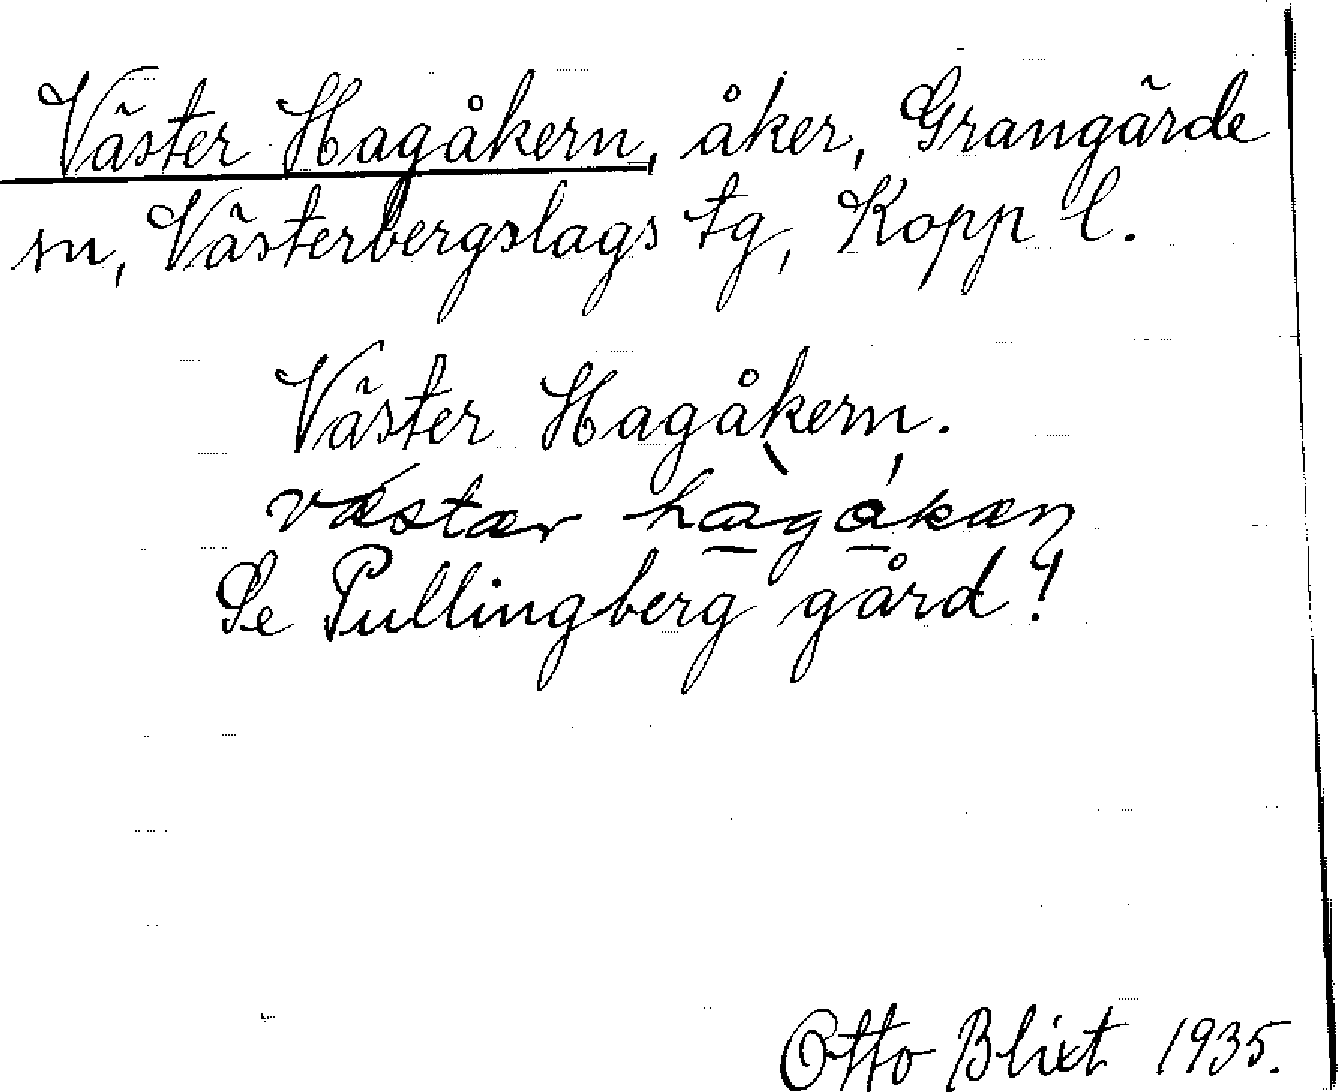 Väster Hagåkern, åker, Grangärde
sn, Västerbergslags tg, Kopp l.
Väster Hagåkern.
västær hagåkæn
Se Pullingberg gård!
Otto Blixt 1935.